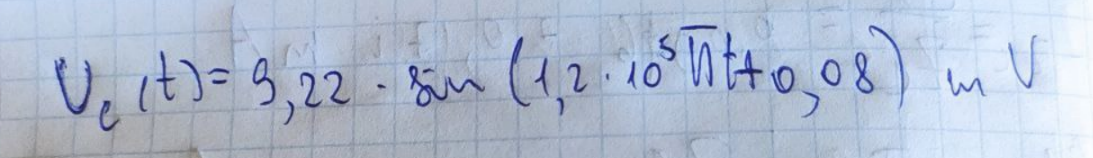 U_c(t) = 9,22 · sin (1,2 · 10⁵πt + 0,08) mV